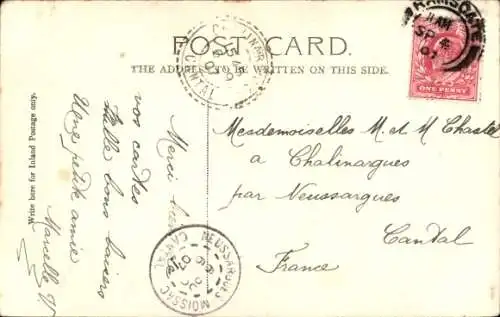 POST CARD.
THE ADDRESS TO BE WRITTEN ON THIS SIDE.
RAMSGATE
SP
07
ONE PENNY
CANTAL
Write here for Inland Postage only.
Merci
vos cartes
Mille bons baisers
petite amie
Marcelle V.
Mesdemoiselles M. et M. Chastel
à Chalinargues
par Neussargues
Cantal
France
NEUSSARGUES MOISSAC
CANTAL
07